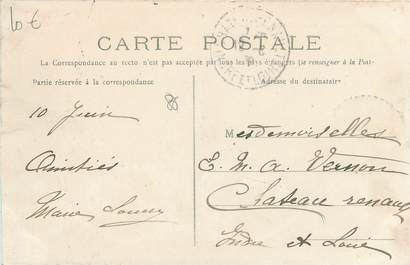 10 €
CARTE POSTALE
La Correspondance au recto n'est pas acceptée par tous les pays étrangers (se renseigner à la Poste)
Partie réservée à la correspondance
Adresse du destinataire
10 Juin
Amitiés
Marie
Mesdemoiselles
E. M. A. Vernon
Chateau renault
Indre et Loire